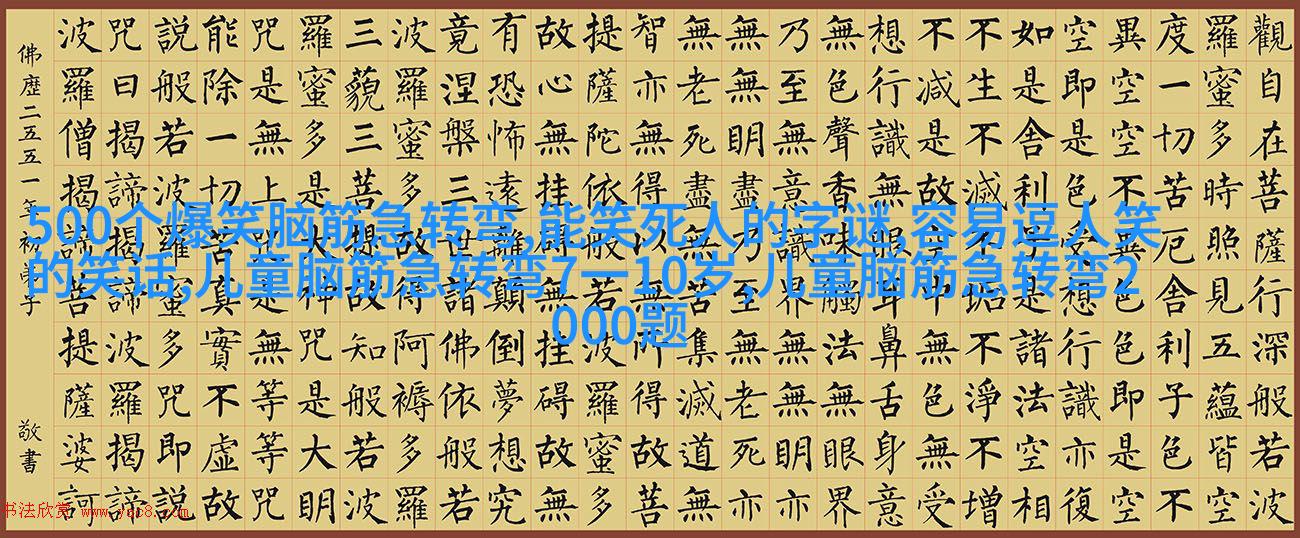 觀自在菩薩行深般若波
羅蜜多時照見五蘊皆空
度一切苦厄舍利子色不
異空空不異色色即是空
空即是色受想行識亦復
如是舍利子是諸法空相
不生不滅不垢不淨不增
不減是故空中無色無受
想行識無眼耳鼻舌身意
無色聲香味觸法無眼界
乃至無意識界無無明亦
無無明盡乃至無老死亦
無老死盡無苦集滅道無
智亦無得以無所得故菩
提薩陀依般若波羅蜜多
故心無挂碍無挂碍故無
有恐怖遠離顛倒夢想究
竟涅槃三世諸佛依般若
波羅蜜多故得阿褥多羅
三藐三菩提故知般若波
羅蜜多是大神咒是大明
咒是無上咒是無等等咒
能除一切苦真實不虛故
說般若波羅蜜多咒即說
咒曰揭諦揭諦波羅揭諦
波羅僧揭諦菩提薩婆訶
佛歷二五五一年初 子 敬書
500个爆笑脑筋急转弯,能笑死人的字谜,容易逗人笑
的笑话,儿童脑筋急转弯7一10岁,儿童脑筋急转弯2
000题
书法欣赏 www.yac8.com